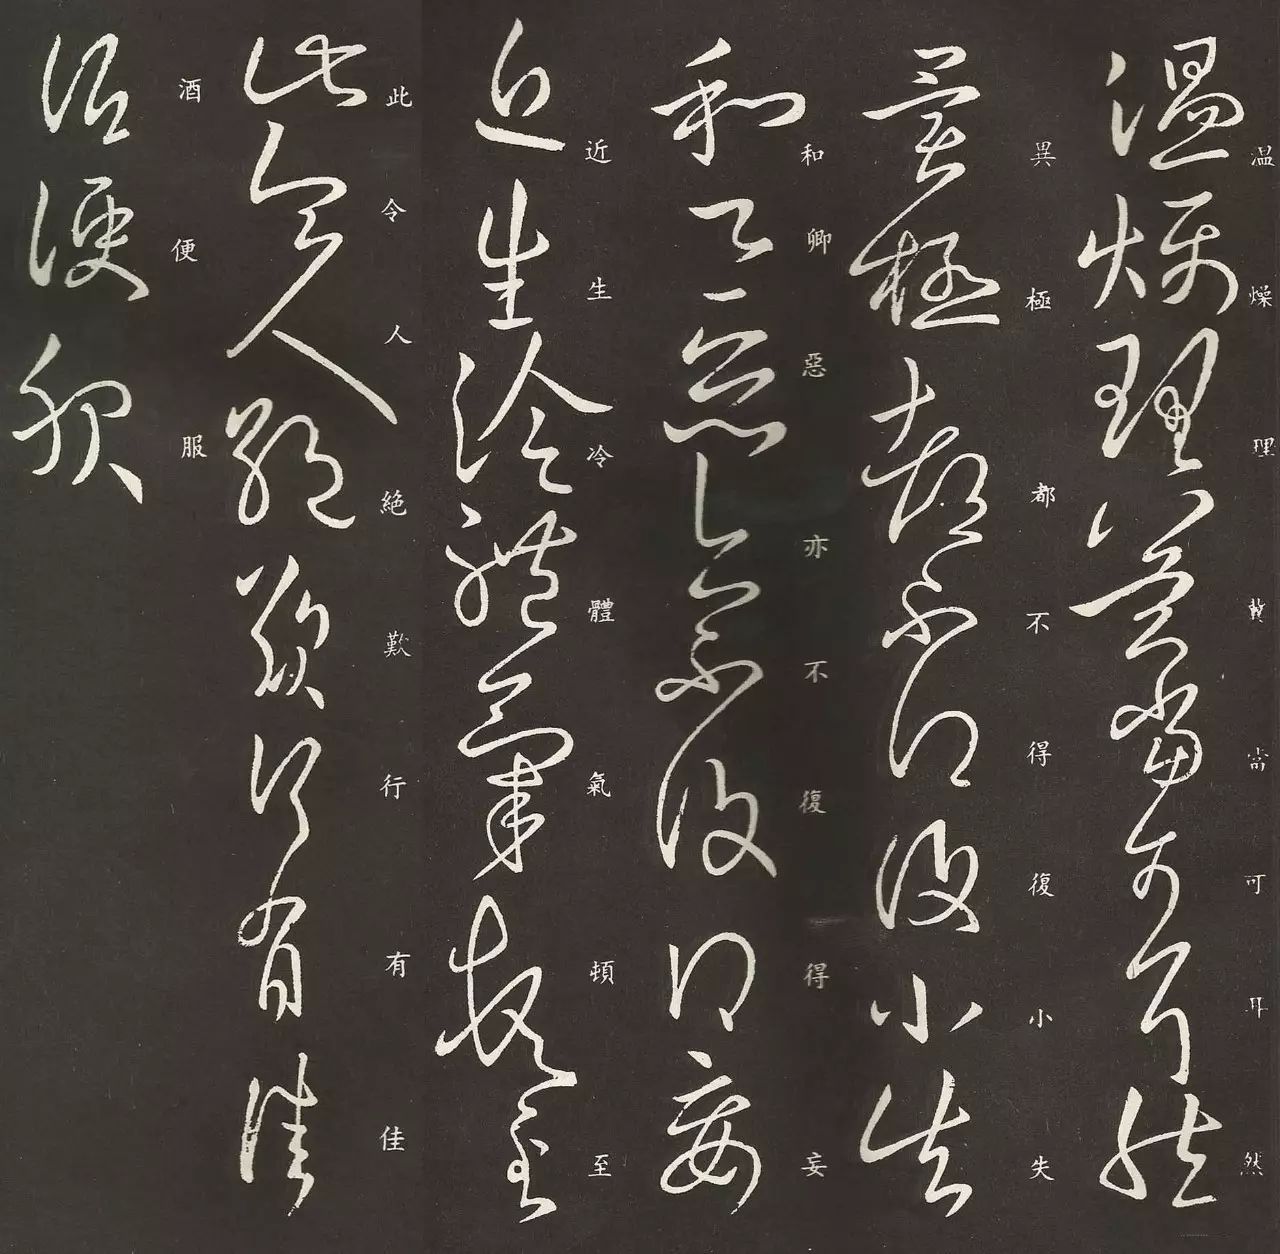 温燥理當可耳然
異極都不得復小失
和卿惡亦不復得妄
近生冷體氣頓至
此令人絶歎行有佳
酒便服